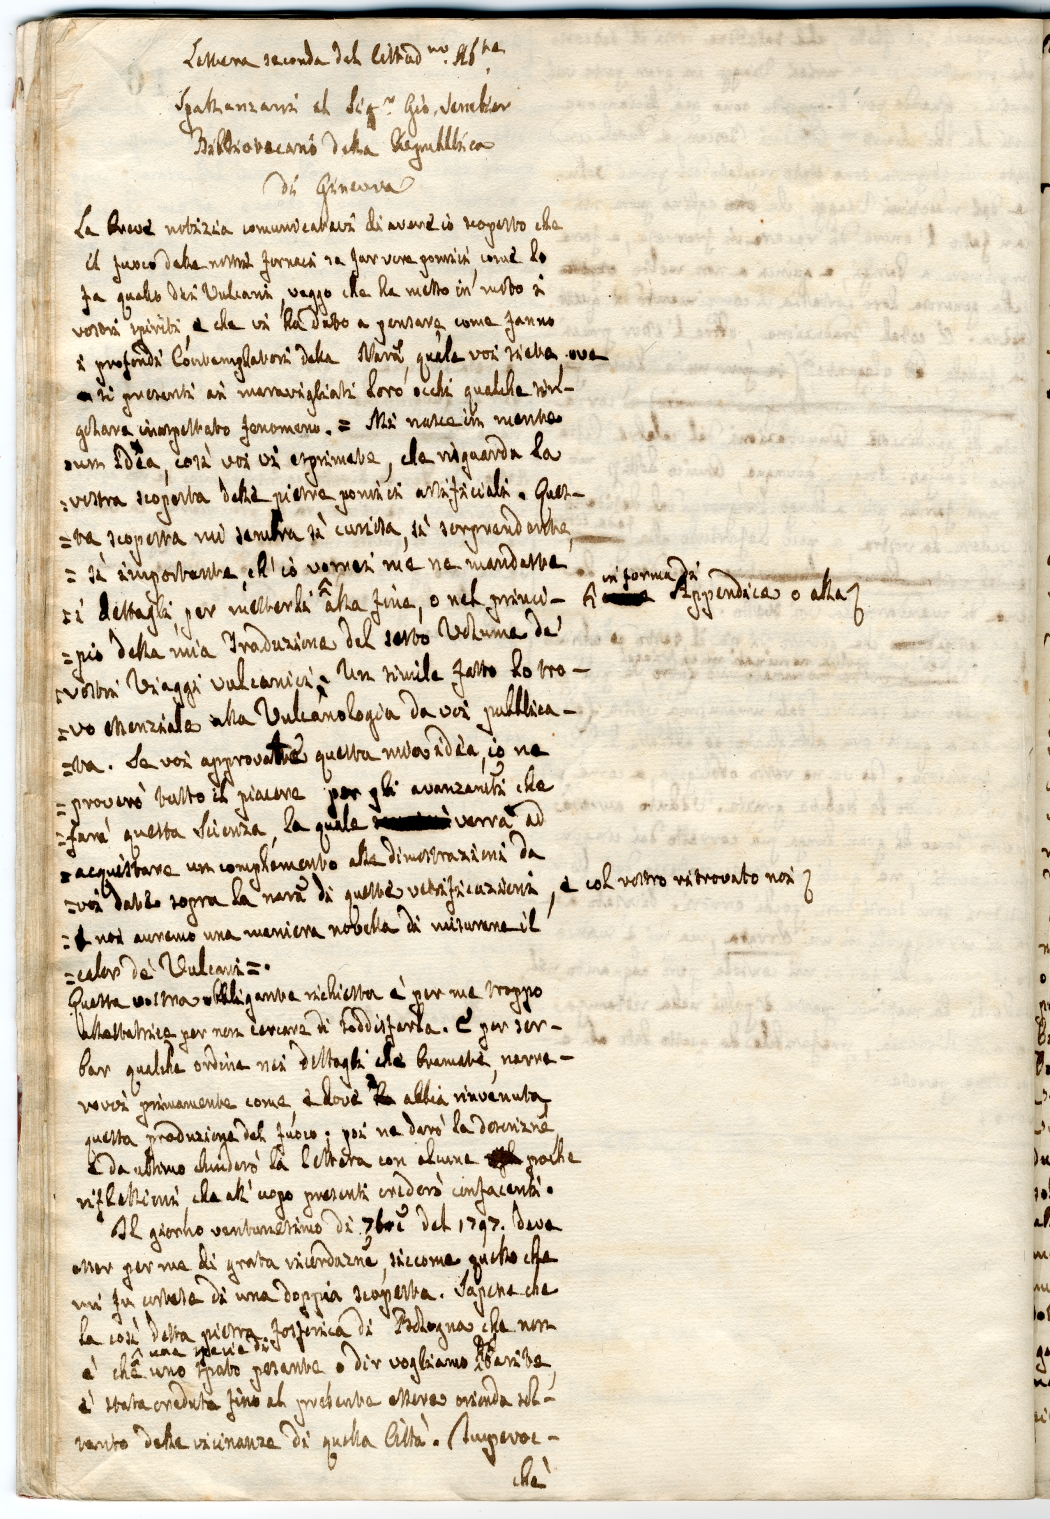 Lettera seconda del Cittad.no Ab.te
Spallanzani al Sig.r Gio. Senebier
Bibliotecario della Repubblica
di Ginevra
La breve notizia comunicatavi di avere io scoperto che
il fuoco delle nostre fornaci sa far vere pomici, come lo
fa quello dei Vulcani, veggo che ha messo in moto i
vostri spiriti, e che vi ha dato a pensare, come fanno
i profondi Contemplatori della Natura, quale voi siete ove
si presenti ai maravigliati loro occhi qualche sin-
golare inaspettato fenomeno. = Mi nasce in mente
=un idea, così voi vi esprimete, che risguarda la
=vostra scoperta delle pietre pomici artificiali. Ques-
=ta scoperta mi sembra sì curiosa, sì sorprendente,
= sì importante ch' io vorrei me ne mandaste
=i dettagli, per metterli ^ alla fine, o nel princi-
^ in forma di Appendice o alla
=pio della mia Traduzione del sesto Volume de'
=vostri Viaggi vulcanici. Un simile fatto lo tro-
=vo essenziale alla Vulcanologia da voi pubblica-
=ta. Se voi approvate questa mia idea, io ne
=proverò tutto il piacere per gli avanzam.ti che
=farà questa Scienza, la quale verrà ad
=acquistare un complemento alle dimostrazioni da
=voi date sopra la natura di queste vetrificazioni, e col vostro ritrovato noi
= noi avremo una maniera novella di misurare il
=calor de' Vulcani=.
Questa vostra obbligante richiesta è per me troppo
allettatrice per non cercare di soddisfarla. E per ser-
bar qualche ordine nei dettagli che bramate, narre-
rovvi primamente come, e dove abbia rinvenuta
questa produzione del fuoco; poi ne darò la descrizne
e da ultimo chiuderò la lettera con alcune poche
riflessioni, che all' uopo presenti crederò confacenti.
Il giorno ventunesimo di 7bre del 1797. deve
esser per me di grata ricordazne, siccome quello che
mi fu cortese di una doppia scoperta. Sapete che
la così detta pietra fosforica di Bologna che non
una specie di
è che ^ uno spato pesante o dir vogliamo barite,
è stata creduta fino al presente essere oriunda sol-
tanto delle vicinanze di quella Città. Imperoc-
chè